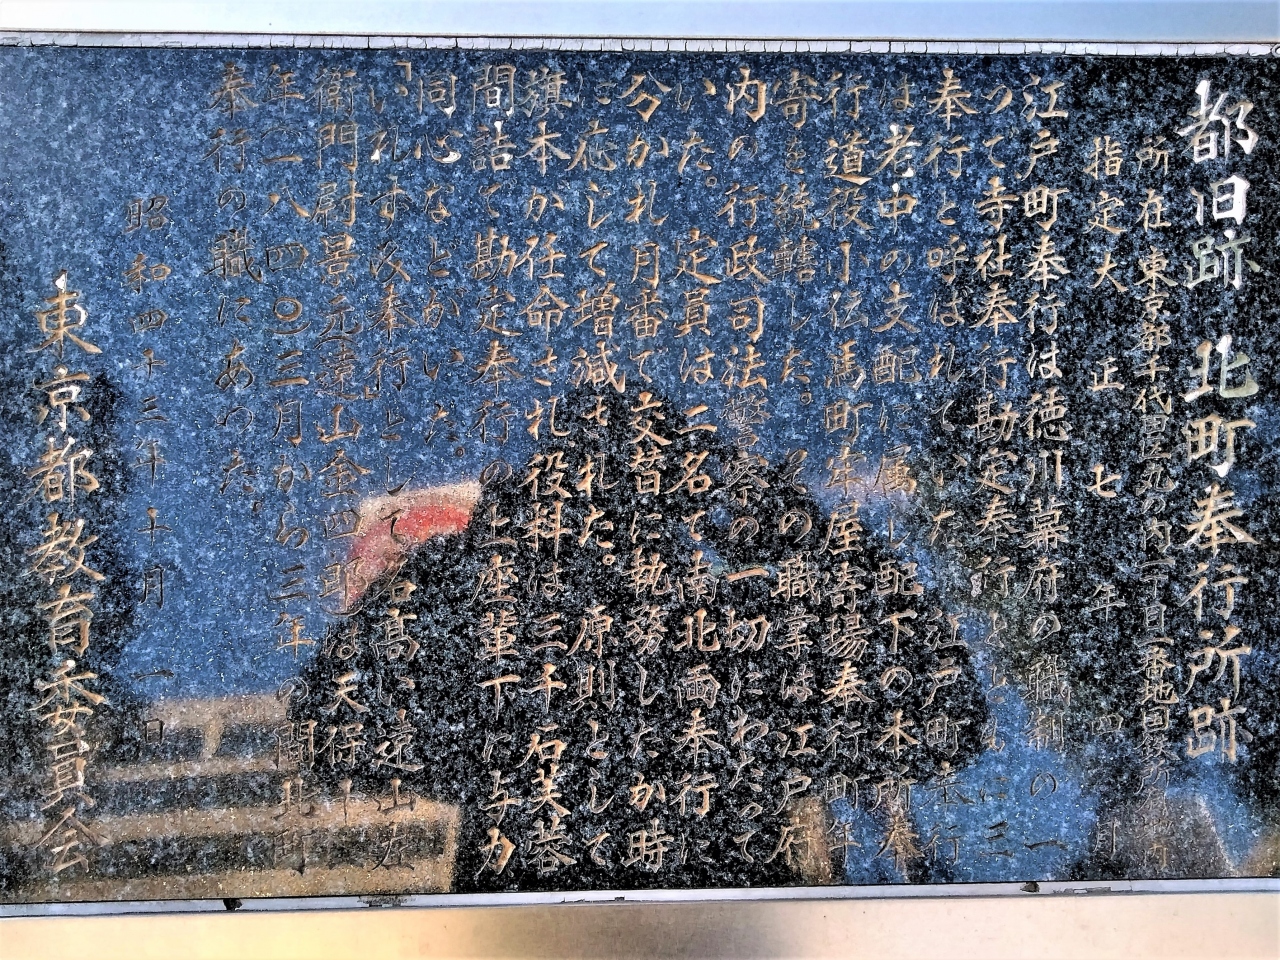 都旧跡 北町奉行所跡
所在 東京都千代田区丸の内一丁目一番地国鉄所有地内
指定 大正七年四月
江戸町奉行は徳川幕府の職制の一
つで寺社奉行勘定奉行とともに三
奉行と呼ばれていた 江戸町奉行
は老中の支配に属し配下の本所奉
行道役小伝馬町牢屋寄場奉行町年
寄を統轄した。その職掌は江戸府
内の行政司法警察の一切にわたって
いた。定員は二名で南北両奉行に
分かれ月番で交替に執務したが時
に応じて増減された。原則として
旗本が任命され役料は三千石芙蓉
間詰で勘定奉行の上座輩下に与力
同心などがいた。
「いれずみ奉行」として名高い遠山左
衛門尉景元遠山金四郎は天保十一
年(一八四〇)三月から三年の間北町
奉行の職にあった。
昭和四十三年十月一日
東京都教育委員会